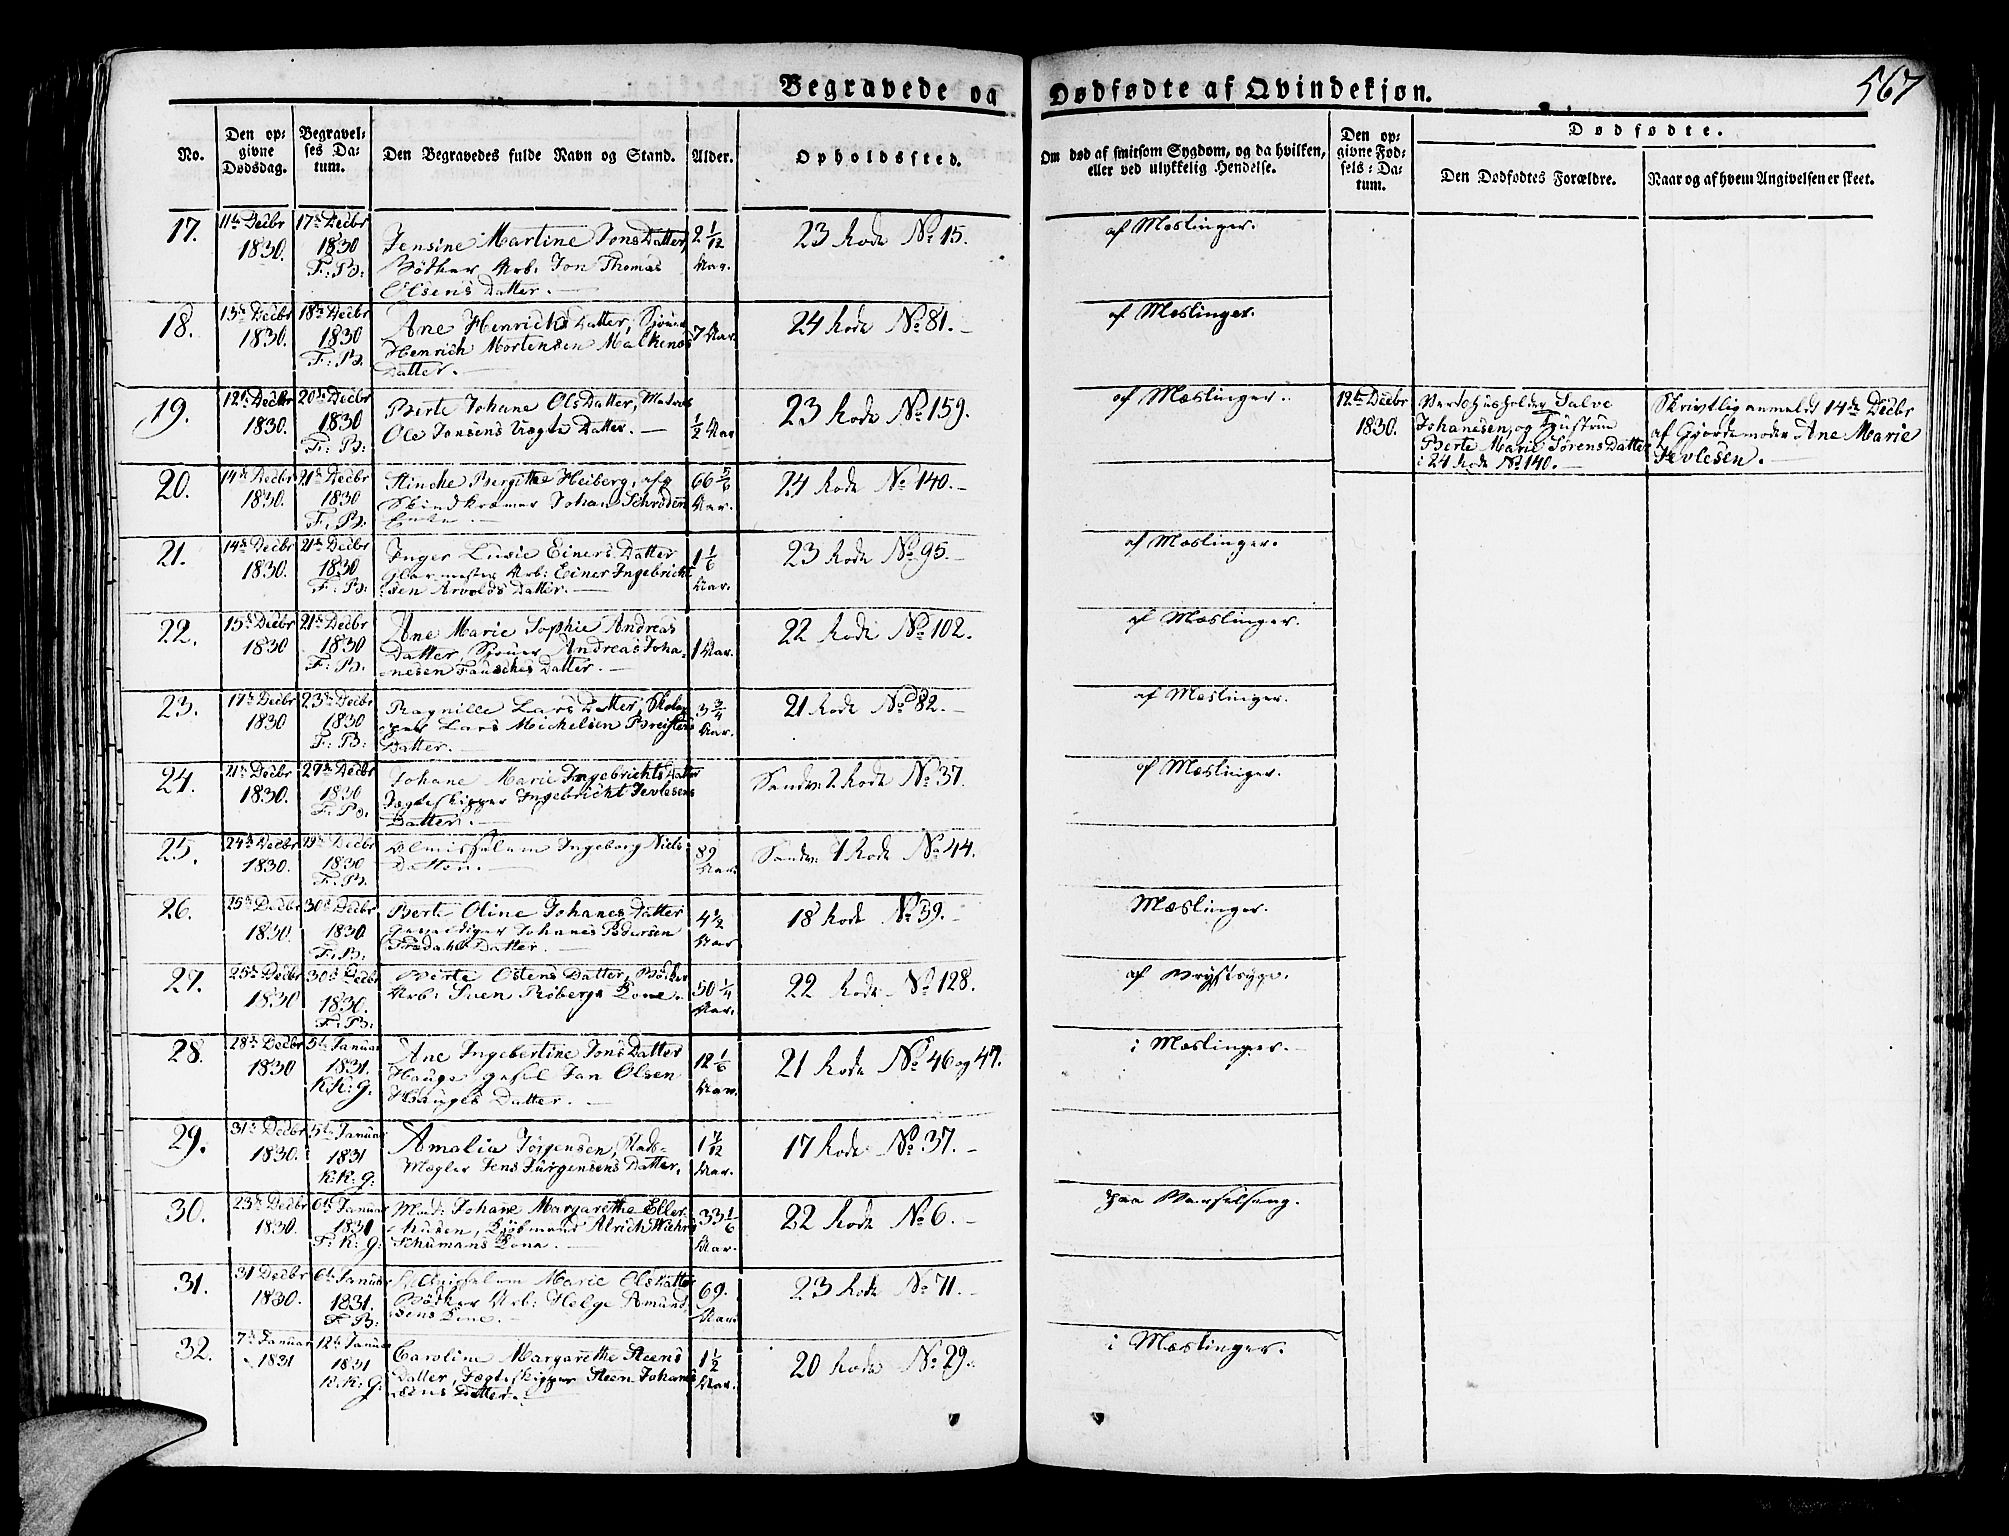 567
Begravede og Dødfødte af Qvindekjøn.
No.
Den op-
givne
Dødsdag.
Begravel-
ses Da-
tum.
Den Begravedes fulde Navn og Stand.
Alder.
Opholdssted.
Om død af smitsom Sygdom, og da hvilken,
eller ved ulykkelig Hendelse.
Den op-
givne Fød-
sels-Da-
tum.
Dødfødte.
Den Dødfødtes Forældre.
Naar og af hvem Angivelsen er skeet.
17. 11te Decbr 17de Decbr
1830. 1830
F: B:
Jensine Martine JonsDatter,
Bödker Arb: Jon Thomas
Olsens Datter.
2 1/12
Aar.
23 Rode No 15.
af Mæslinger.
18. 13de Decbr 18de Decbr
1830. 1830
F: B:
Ane HenrichsDatter,
Henrich Mortensen
Datter.
7 Aar.
24 Rode No 81.
af Mæslinger.
19. 12te Decbr 20de Decbr
1830. 1830
F: B:
Berte Johane OlsDatter,
Ole Jonsens Datter.
1/2 Aar
23 Rode No 159.
af Mæslinger.
12te Decbr
1830.
Salve
Johanesen, og Hustrue
Berte Marie SørensDatter
i 24 Rode No 140.
Skrivtlig anmeldt 14de Decbr
af Gjordemoder Ane Marie
Ievlesen.
20. 14de Decbr 21de Decbr
1830. 1830
F: B:
Bergitte Heiberg, afg
Johan Schrøders
Enke
66 5/6
Aar.
24 Rode No 140.
21. 14de Decbr 21de Decbr
1830. 1830
F: B:
Inger Lusie EinersDatter
Arb: Einer Ingebricht
sen Datter.
1 1/6
Aar.
23 Rode No 95.
af Mæslinger.
22. 15de Decbr 21de Decbr
1830 1830
F: B:
Ane Marie Sophie Andreas
Datter, Andreas Joha-
nesen Fausches Datter.
1 Aar.
22 Rode No 102.
af Mæslinger.
23. 17de Decbr 23de Decbr
1830 1830
F: B:
Ragnille LarsDatter,
Lars Michelsen
Datter.
3 3/4
Aar.
21 Rode No 82.
af Mæslinger.
24. 21de Decbr 27de Decbr
1830. 1830
F: B:
Johane Marie IngebrichtsDatter
Jægteskipper Ingebricht Ievlesens
Datter.
Sandv: 2 Rode No 37.
af Mæslinger.
25. 24de Decbr 29de Decbr
1830. 1830
F: B:
Almisselem Ingeborg Niels
Datter.
89
Aar.
Sandv: 1 Rode No 44.
26. 25de Decbr 30de Decbr
1830. 1830
F: B:
Berte Oline JohanesDatter
Johanes Pedersen
Datter.
4 1/2
Aar
18 Rode No 39.
Mæslinger.
27. 25de Decbr 30de Decbr
1830 1830.
F: B:
Berte OstensDatter, Bødker
Arb: Sven Kone.
50 1/4
Aar.
22 Rode No 128.
af Brystsyge.
28. 28de Decbr 5te Januar
1830 1831.
KK: g.
Ane Ingebertine JonsDatter
Jan Olsen
Hauges Datter.
12 1/6
Aar.
21 Rode No 46 og 47.
i Mæslinger.
29. 31te Decbr 5te Januar
1830. 1831
KK: g.
Amalia Jørgensen, Stads-
Mægler Jens Jürgensens Datter.
1 7/12
Aar.
17 Rode No 37.
30. 23de Decbr 6te Januar
1830. 1831
F: K: g:
Mad: Johane Margarethe Eller-
husen, Kjøbmand
Schumans Kone.
33 1/6
Aar.
22 Rode No 6.
paa Barselseng.
31. 31 Decbr 6te Januar
1830. 1831.
F: B:
Marie OlsDatter
Bödker Arb: Helge Amund-
sens Kone.
69.
Aar.
23 Rode No 71.
32. 7de Januar 12te Januar
1831 1831
K.K: g.
Caroline Margarethe Steens
Datter, Jægteskipper Steen Johane
sens Datter.
1 1/2
Aar.
20 Rode No 29.
i Mæslinger.